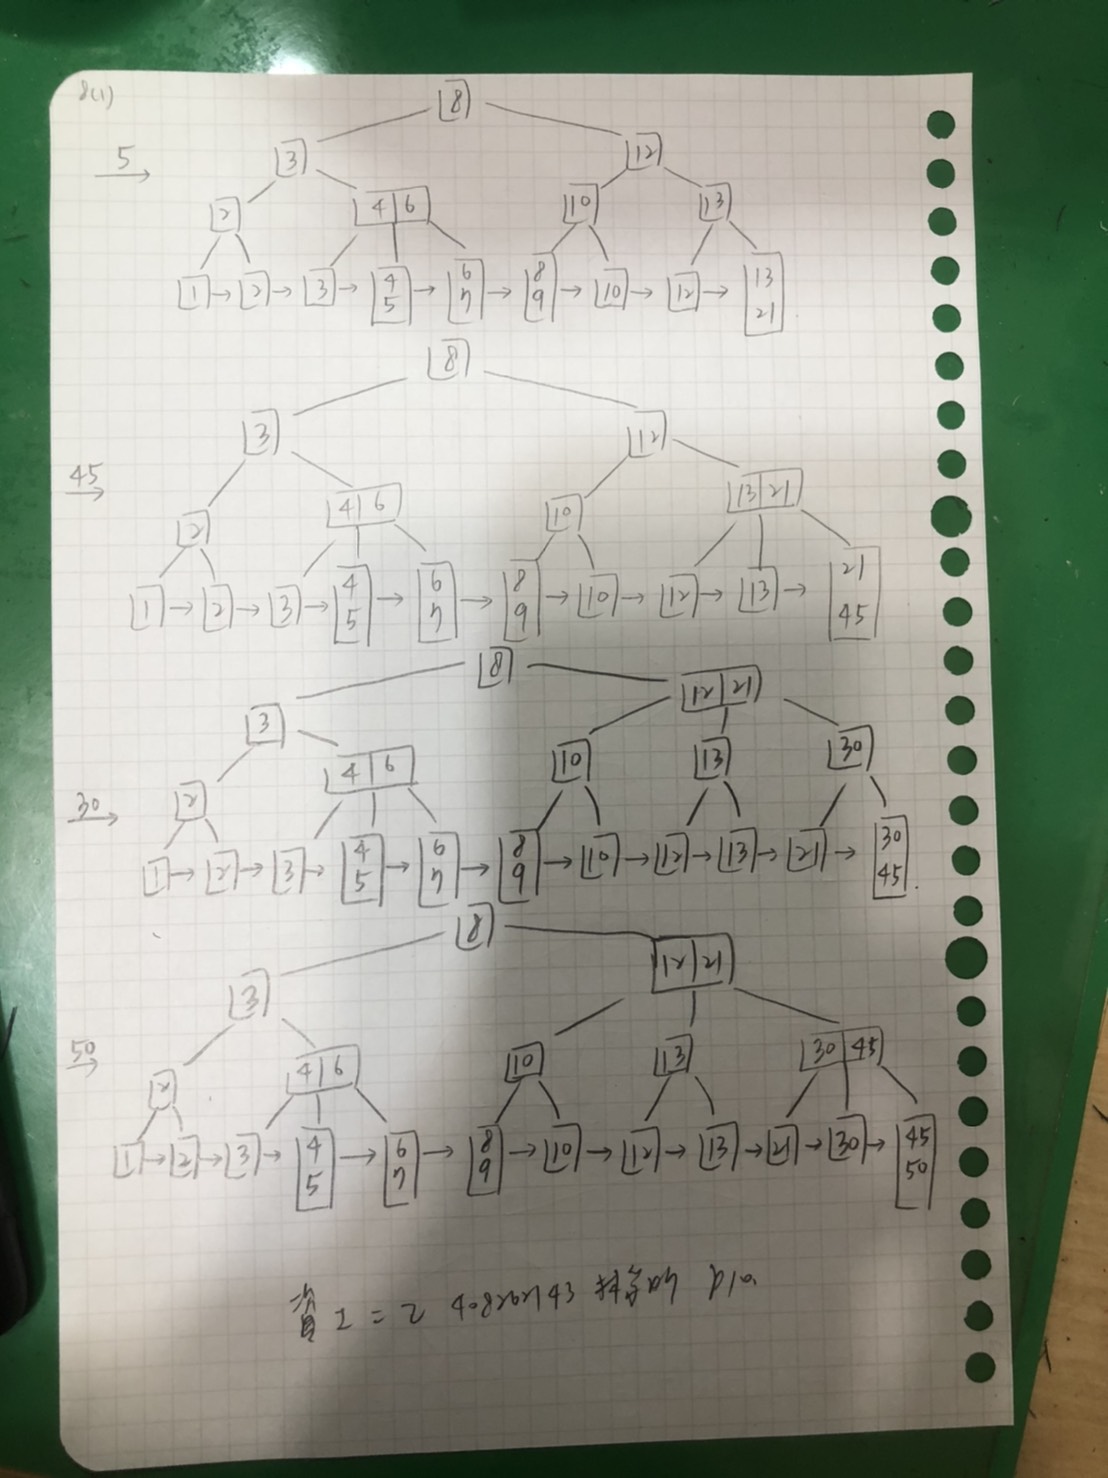 8(1)
8
5 →
3 12
2 4 6 10 13
1 → 2 → 3 → 4 5 → 6 7 → 8 9 → 10 → 12 → 13 21
8
3 12
45 →
4 6 13 21
2 10
1 → 2 → 3 → 4 5 → 6 7 → 8 9 → 10 → 12 → 13 → 21 45
8 12 21
3
4 6 10 13 30
30 →
2
1 → 2 → 3 → 4 5 → 6 7 → 8 9 → 10 → 12 → 13 → 21 → 30 45
8
12 21
3
50 →
2 4 6 10 13 30 45
1 → 2 → 3 → 4 5 → 6 7 → 8 9 → 10 → 12 → 13 → 21 → 30 → 45 50
資工二 408262143